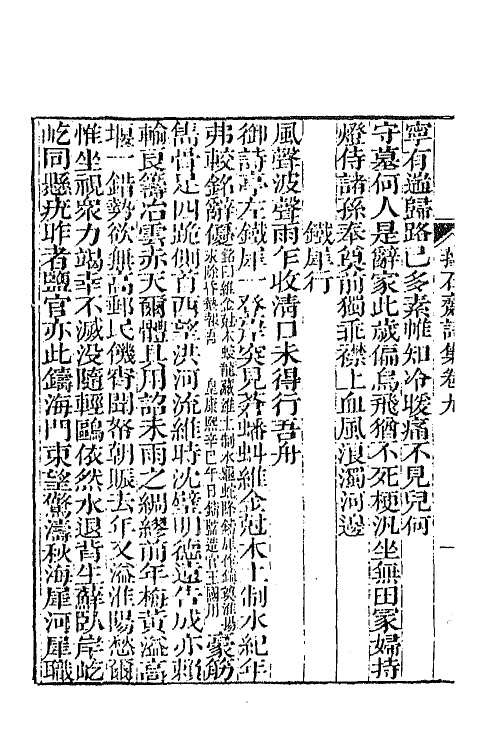 籜石齋詩集卷九
一
寧有過歸路已多素帷知冷暖痛不見兒何
守墓何人是辭家此歲偏烏飛猶不死梗汎坐無田冢婦持
燈侍諸孫奉奠前獨乖襟上血風浪濁河邊
鐵犀行
風聲波聲雨乍收清口未得行吾舟
御詩亭左鐵犀一登岸突見蒼蟠虯維金尅木土制水紀年
弗較銘辭優銘曰維金尅木蛟龍藏維土制水龜蛇降鑄犀作鎮奠淮揚永除昏墊報吾 皇康熙辛巳午日鑄監造官王國用豪筋
雋骨足四跪側首西望洪河流維時沈璧明德遠告成亦賴
輸良籌冶雲赤天爾體具用詔未雨之綢繆前年梅黃溢高
堰一錯勢欲無高郵民饑宵聞帑朝賑去年又溢淮陽愁爾
惟坐視衆力竭幸不滅没隨輕鷗依然水退背生蘚臥岸屹
屹同懸疣昨者鹽官亦此鑄海門東望驚濤秋海犀河犀職